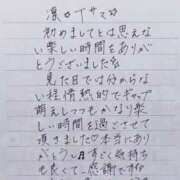 凛々イサマ☆
初めましてとは思えな
い楽しい時間をありが
とうございました
見た目では分からな
い程情熱的でギャップ
萌えしつつもかなり楽
しい時間を過ごさせて
頂きました♡本当にあり
がとう♫すごく気持ち
も良くて、感謝です